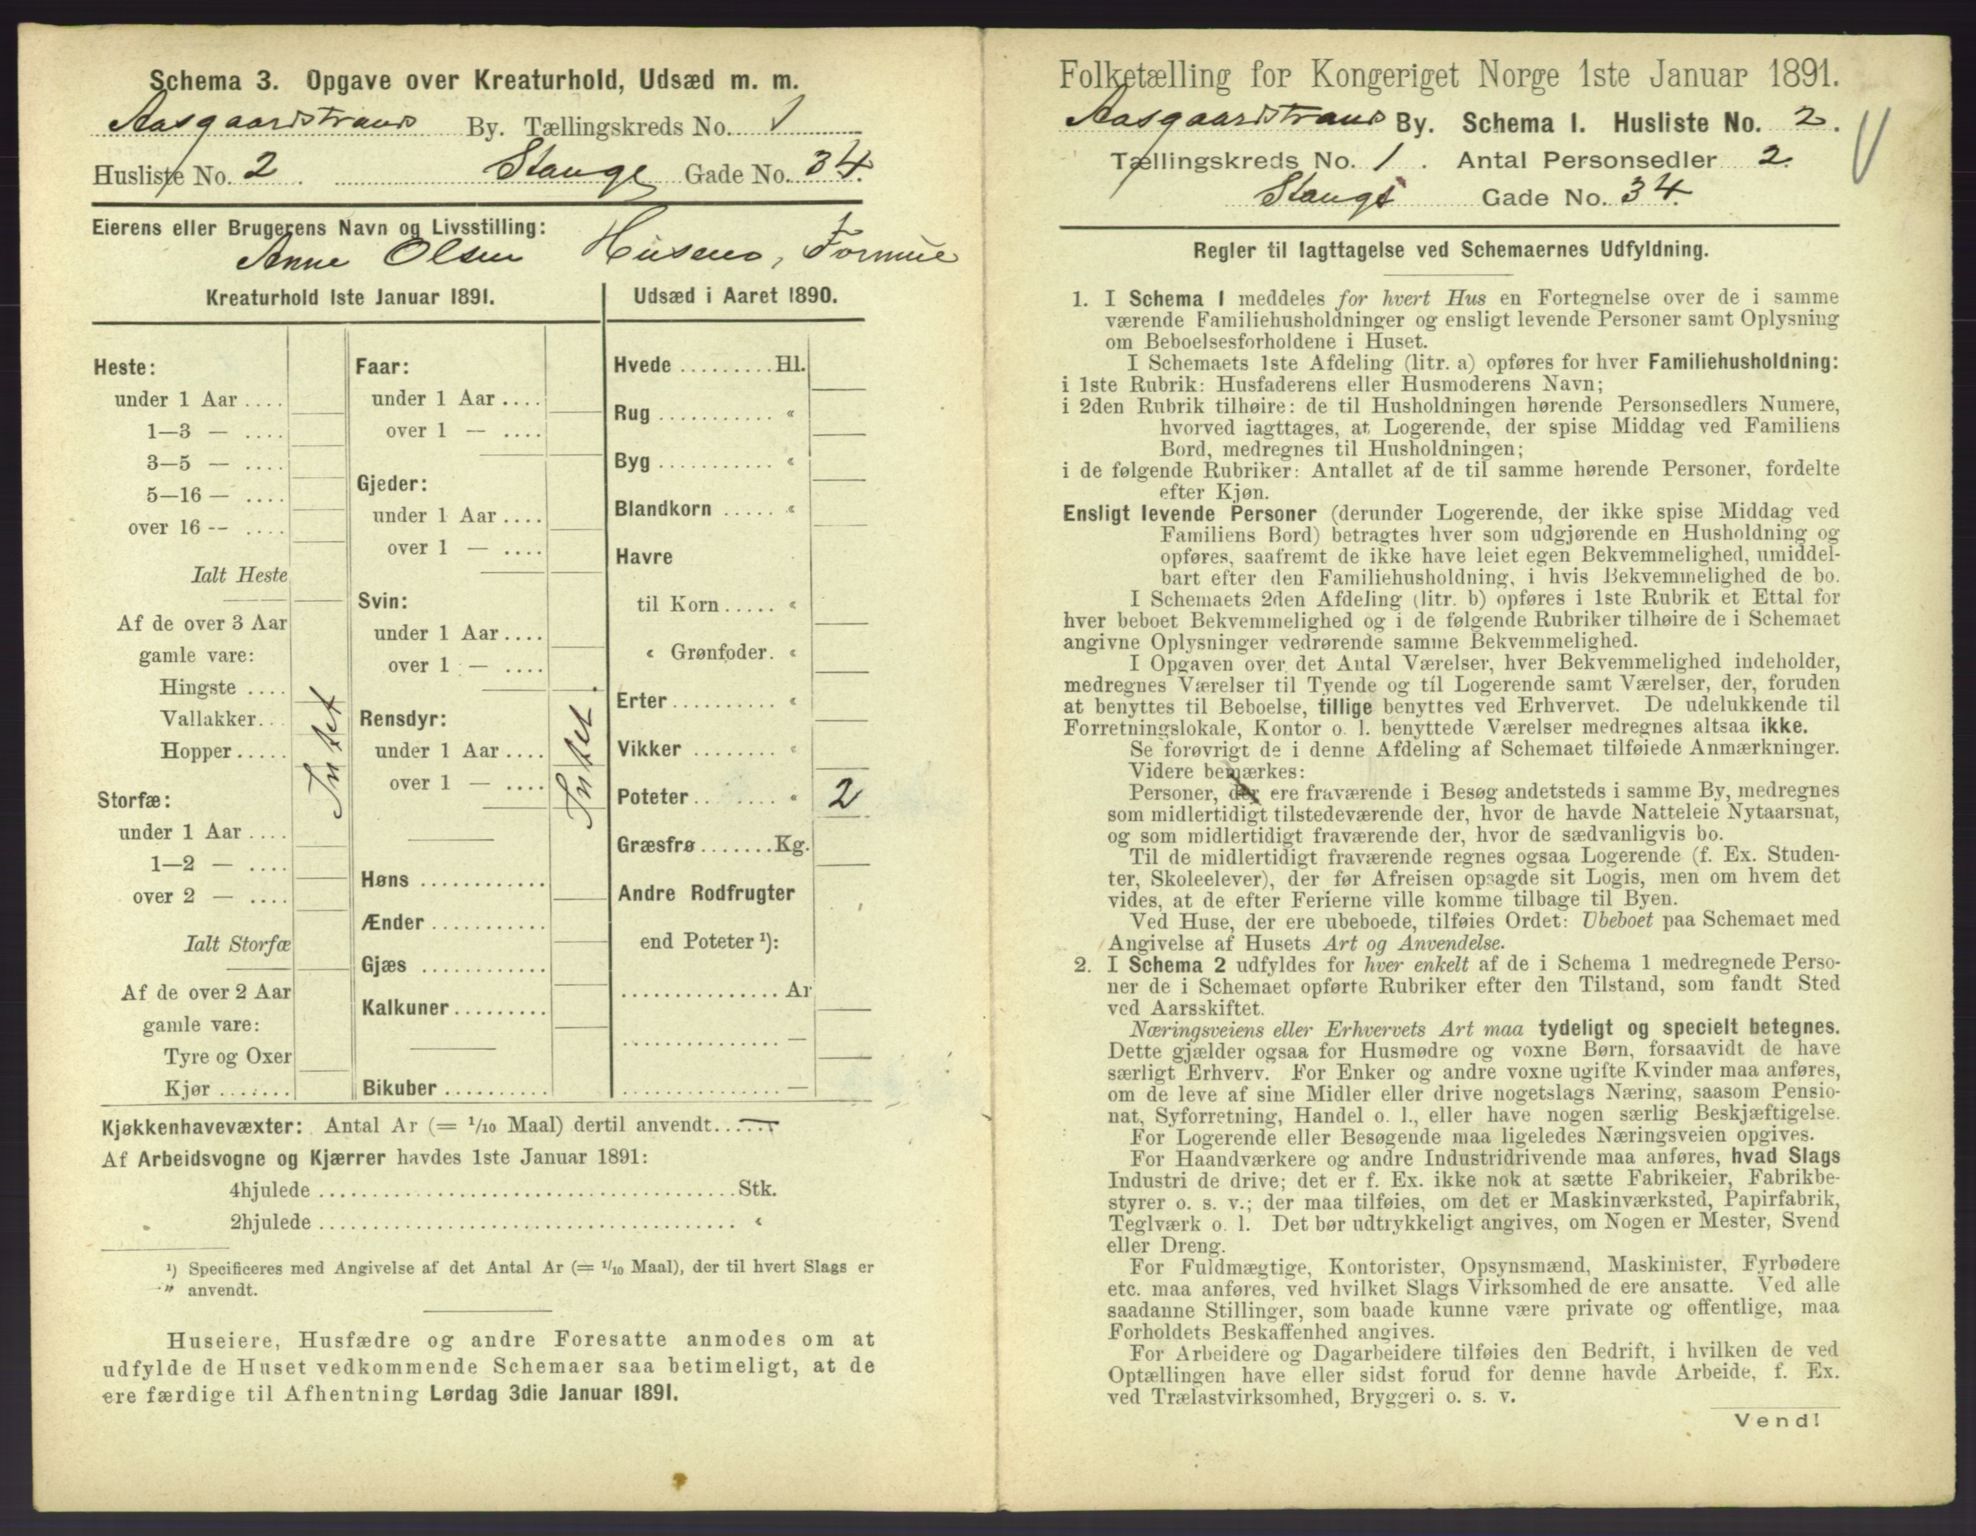 Schema 3. Opgave over Kreaturhold, Udsæd m. m.
Aasgaardstrands By. Tællingskreds No. 1
Husliste No. 2 Stange Gade No. 34.
Eierens eller Brugerens Navn og Livsstilling:
Anne Olsen Huseno, Formue
Kreaturhold 1ste Januar 1891.
Heste:
under 1 Aar ....
1—3 — ....
3—5 — ....
5—16 — ....
over 16 -- ....
Ialt Heste
Af de over 3 Aar
gamle vare:
Hingste ....
Vallakker...
Hopper ....
Storfæ:
under 1 Aar ....
1—2 — ....
over 2 — ....
Ialt Storfæ
Af de over 2 Aar
gamle vare:
Tyre og Oxer
Kjør .......
Intet
Faar:
under 1 Aar ....
over 1 — ....
Gjeder:
under 1 Aar ....
over 1 — ....
Svin:
under 1 Aar ....
over 1 — ....
Rensdyr:
under 1 Aar ....
over 1 — ....
Høns ............
Ænder ...........
Gjæs ............
Kalkuner .........
Bikuber ..........
Intet.
Udsæd i Aaret 1890.
Hvede ......... Hl.
Rug ........... «
Byg ........... «
Blandkorn ..... «
Havre
til Korn ..... «
« Grønfoder. «
Erter .......... «
Vikker ........ «
Poteter ....... « 2
Græsfrø ....... Kg.
Andre Rodfrugter
end Poteter ¹):
............... Ar
............... —
............... —
Kjøkkenhavevæxter: Antal Ar (= 1/10 Maal) dertil anvendt. —
Af Arbeidsvogne og Kjærrer havdes 1ste Januar 1891:
4hjulede ........................................ Stk.
2hjulede ........................................ «
¹) Specificeres med Angivelse af det Antal Ar (= 1/10 Maal), der til hvert Slags er
anvendt.
Huseiere, Husfædre og andre Foresatte anmodes om at
udfylde de Huset vedkommende Schemaer saa betimeligt, at de
ere færdige til Afhentning Lørdag 3die Januar 1891.
Folketælling for Kongeriget Norge 1ste Januar 1891.
Aasgaardstrands By. Schema 1. Husliste No. 2.
Tællingskreds No. 1. Antal Personsedler 2.
Stange Gade No. 34.
Regler til Iagttagelse ved Schemaernes Udfyldning.
1. I Schema 1 meddeles for hvert Hus en Fortegnelse over de i samme
værende Familiehusholdninger og ensligt levende Personer samt Oplysning
om Beboelsesforholdene i Huset.
I Schemaets 1ste Afdeling (litr. a) opføres for hver Familiehusholdning:
i 1ste Rubrik: Husfaderens eller Husmoderens Navn;
i 2den Rubrik tilhøire: de til Husholdningen hørende Personsedlers Numere,
hvorved iagttages, at Logerende, der spise Middag ved Familiens
Bord, medregnes til Husholdningen;
i de følgende Rubriker: Antallet af de til samme hørende Personer, fordelte
efter Kjøn.
Ensligt levende Personer (derunder Logerende, der ikke spise Middag ved
Familiens Bord) betragtes hver som udgjørende en Husholdning og
opføres, saafremt de ikke have leiet egen Bekvemmelighed, umiddel-
bart efter den Familiehusholdning, i hvis Bekvemmelighed de bo.
I Schemaets 2den Afdeling (litr. b) opføres i 1ste Rubrik et Ettal for
hver beboet Bekvemmelighed og i de følgende Rubriker tilhøire de i Schemaet
angivne Oplysninger vedrørende samme Bekvemmelighed.
I Opgaven over det Antal Værelser, hver Bekvemmelighed indeholder,
medregnes Værelser til Tyende og til Logerende samt Værelser, der, foruden
at benyttes til Beboelse, tillige benyttes ved Erhvervet. De udelukkende til
Forretningslokale, Kontor o. l. benyttede Værelser medregnes altsaa ikke.
Se forøvrigt de i denne Afdeling af Schemaet tilføiede Anmærkninger.
Videre bemærkes:
Personer, der ere fraværende i Besøg andetsteds i samme By, medregnes
som midlertidigt tilstedeværende der, hvor de havde Natteleie Nytaarsnat,
og som midlertidigt fraværende der, hvor de sædvanligvis bo.
Til de midlertidigt fraværende regnes ogsaa Logerende (f. Ex. Studen-
ter, Skoleelever), der før Afreisen opsagde sit Logis, men om hvem det
vides, at de efter Ferierne ville komme tilbage til Byen.
Ved Huse, der ere ubeboede, tilføies Ordet: Ubeboet paa Schemaet med
Angivelse af Husets Art og Anvendelse.
2. I Schema 2 udfyldes for hver enkelt af de i Schema 1 medregnede Perso-
ner de i Schemaet opførte Rubriker efter den Tilstand, som fandt Sted
ved Aarsskiftet.
Næringsveiens eller Erhvervets Art maa tydeligt og specielt betegnes.
Dette gjælder ogsaa for Husmødre og voxne Børn, forsaavidt de have
særligt Erhverv. For Enker og andre voxne ugifte Kvinder maa anføres,
om de leve af sine Midler eller drive nogetslags Næring, saasom Pensio-
nat, Syforretning, Handel o. l., eller have nogen særlig Beskjæftigelse.
For Logerende eller Besøgende maa ligeledes Næringsveien opgives.
For Haandværkere og andre Industridrivende maa anføres, hvad Slags
Industri de drive; det er f. Ex. ikke nok at sætte Fabrikeier, Fabrikbe-
styrer o. s. v.; der maa tilføies, om det er Maskinværksted, Papirfabrik,
Teglværk o. l. Det bør udtrykkeligt angives, om Nogen er Mester, Svend
eller Dreng.
For Fuldmægtige, Kontorister, Opsynsmænd, Maskinister, Fyrbødere
etc. maa anføres, ved hvilket Slags Virksomhed de ere ansatte. Ved alle
saadanne Stillinger, som baade kunne være private og offentlige, maa
Forholdets Beskaffenhed angives.
For Arbeidere og Dagarbeidere tilføies den Bedrift, i hvilken de ved
Optællingen have eller sidst forud for denne havde Arbeide, f. Ex.
ved Trælastvirksomhed, Bryggeri o. s. v.
Vend!